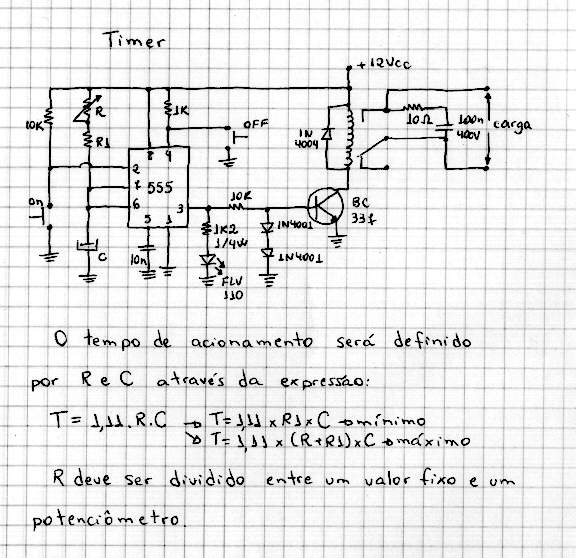 Timer
+12Vcc
10K
R
R1
1K
OFF
1N
4004
10Ω
100n
400V
carga
on
8 4
2
7
6
555
3
5 1
10K
BC
337
C
10n
1K2
1/4W
FLV
110
1N4001
1N4001
O tempo de acionamento será definido
por R e C através da expressão:
T = 1,11.R.C → T=1,11 x R1 x C → mínimo
→ T= 1,11 x (R+R1) x C → máximo
R deve ser dividido entre um valor fixo e um
potenciômetro.